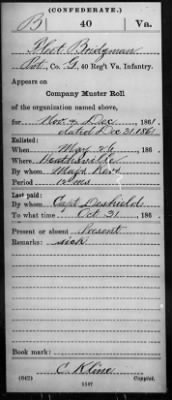 (CONFEDERATE.)
B 40 Va.
Bridgman
Pvt, Co. G, 40 Reg't Va. Infantry.
Appears on
Company Muster Roll
of the organization named above,
for Nov & Dec, 186 .
dated Dec 31 1861
Enlisted:
When May 26, 186 .
Where Heathsville
By whom Majr Kerr
Period 12 ms
Last paid:
By whom Capt Deshields
To what time Oct 31, 186 .
Present or absent Present
Remarks: sick
Book mark:
C. Kline
(642) Copyist.